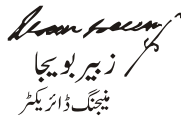 زبیر بویجا
منیجنگ ڈائریکٹر